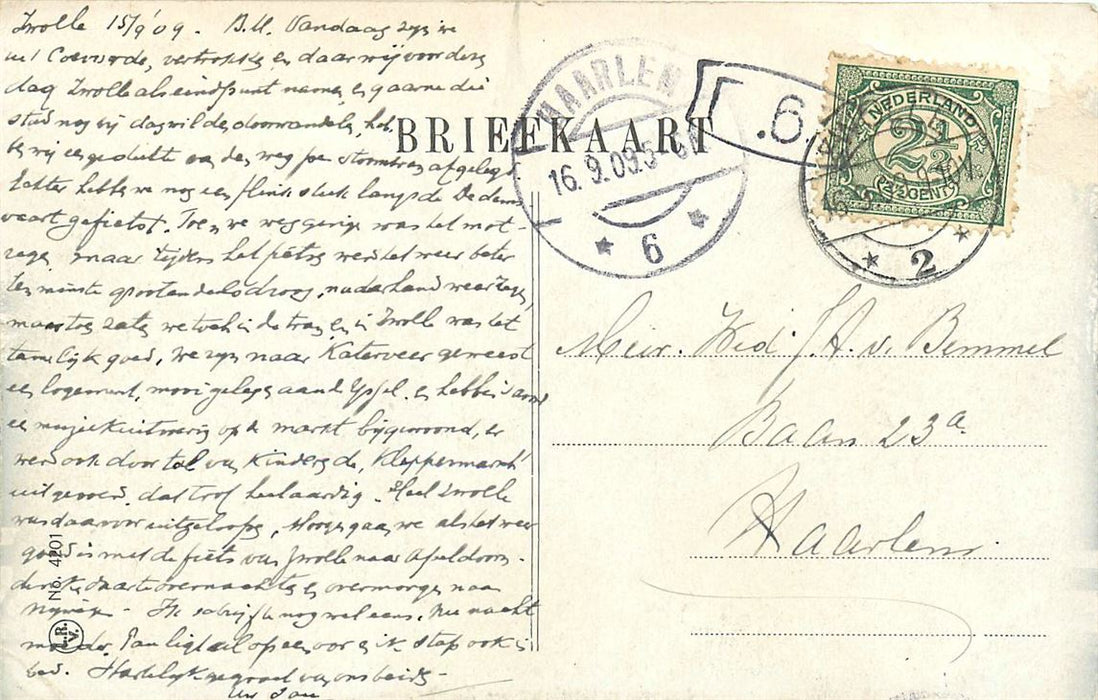 Zwolle 15/9 '09. B.M. Vandaag zijn we
uit Coevorde, vertrokke en daar wij voor deze
dag Zwolle als eindpunt name, en gaarne die
stad nog bij dag wilde doorwandele, heb-
be wij een gedeelte van de weg per stoomtram afgelegd.
Echter hebbe we nog een flink stuk langs de Dedems
vaart gefietst. Toe we weg ginge was het mot-
rege, maar tijdens het fietse werd het weer beter
te minste grootendeels droog, naderhand weer rege,
maar toe zate we toch in de tram en in Zwolle was het
tamelijk goed. We zijn naar Katerveer geweest
een logement, mooi gelege aan de IJssel en hebbe 's avonds
een muziekuitvoering op de markt bijgewoond, er
werd ook door tal van kindere de "Kleppermarsch"
uitgevoerd, dat trof heel aardig. Heel Zwolle
was daarvoor uitgeloope, Morge gaan we als het weer
goed is met de fiets van Zwolle naar Apeldoorn
denkt daar te overnachte en overmorge naar
Nijmege - Ik schrijf u nog wel eens. Nu nacht
moeder. Pau ligt al op een oor en ik stap ook in
bed. Hartelijk gegroet van ons beide -
Uw Jan
BRIEFKAART
HAARLEM
16.9.09.5-6
6
.6
NEDERLAND
2½
2½ CENT
2
Mevr. Wed. J. A. v. Bemmel
Baan 23a.
Haarlem.
No. 4201